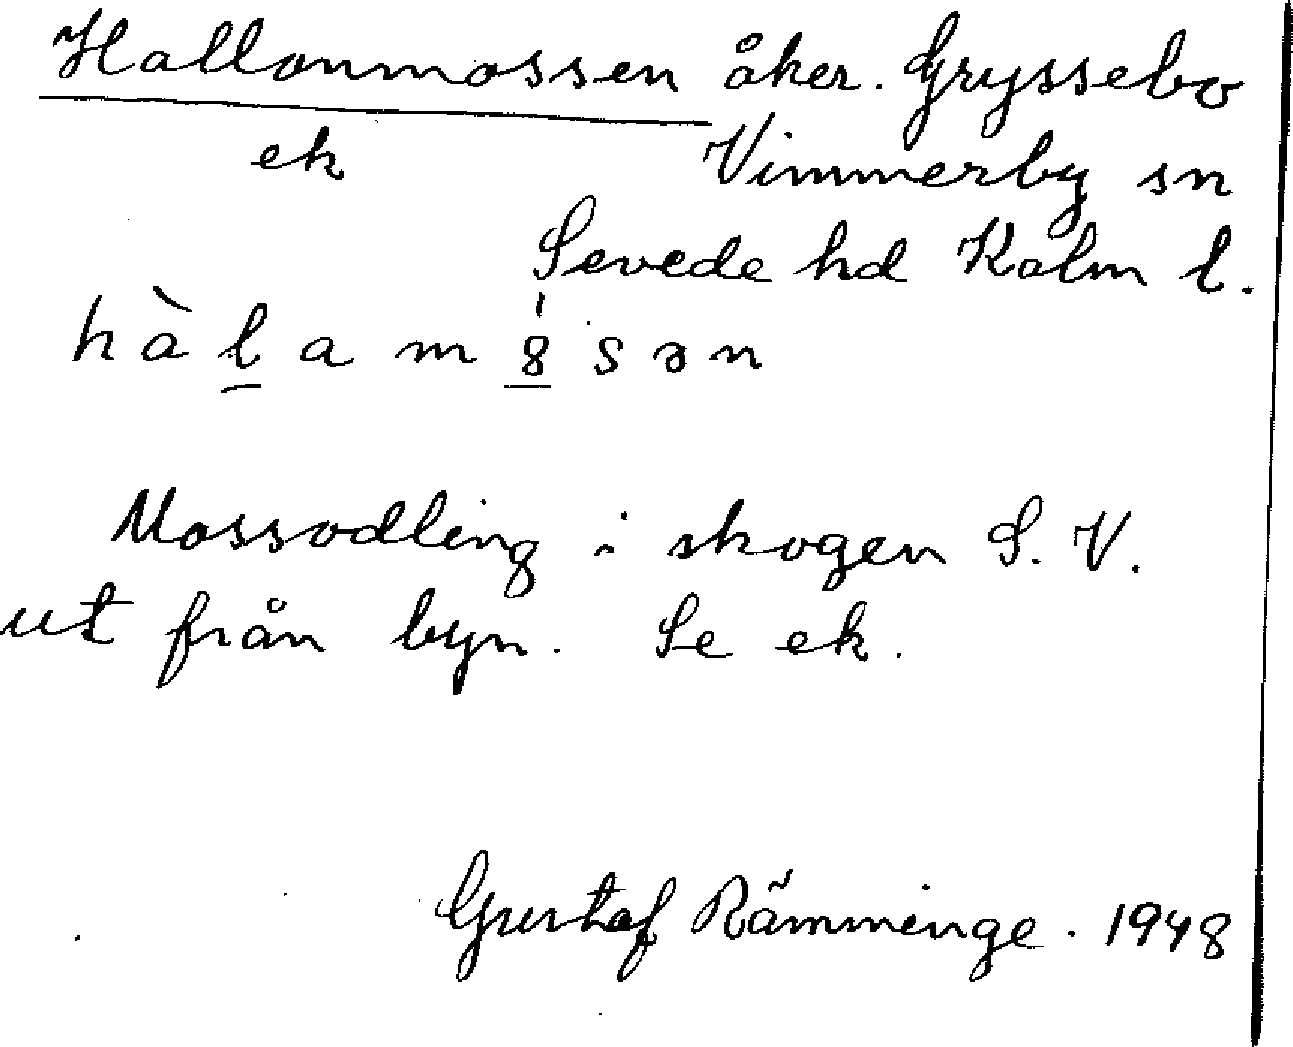 Hallonmossen åker. Gryssebo
ek Vimmerby sn
Sevede hd Kalm l.
hàl̲am8̲̍sən
Mossodling i skogen S. V.
ut från byn. Se ek.
Gustaf Rämminge. 1948